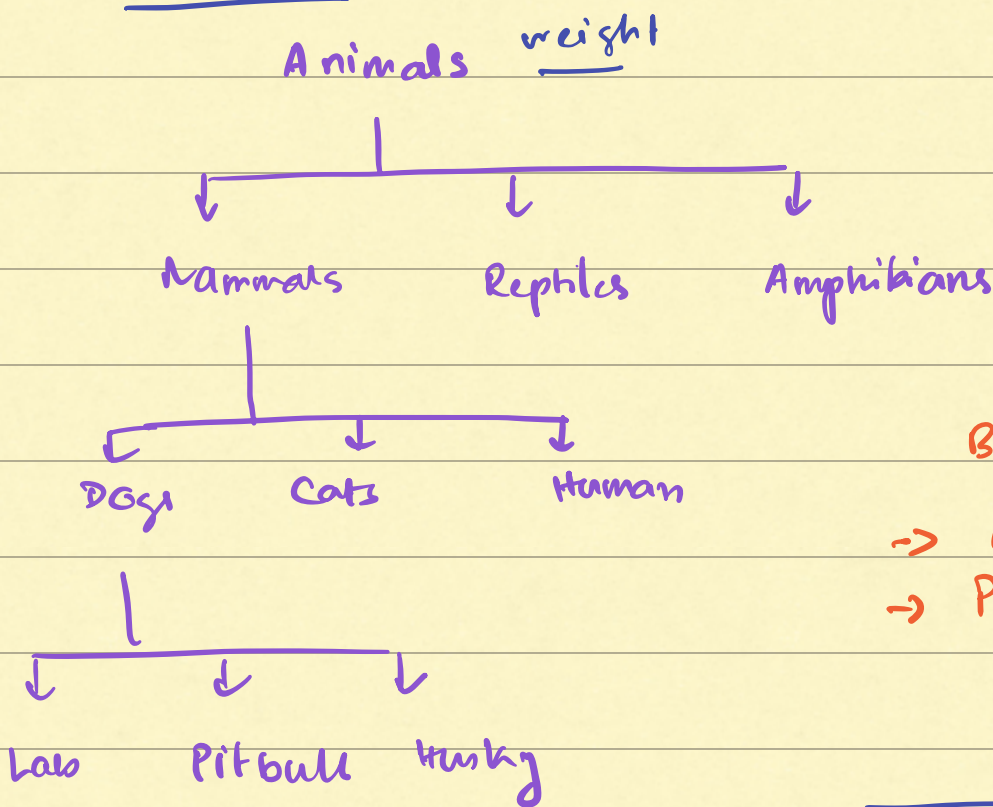 Animals weight
Mammals Reptiles Amphibians
B
Dogs Cats Human
->
-> P
Lab Pitbull Husky